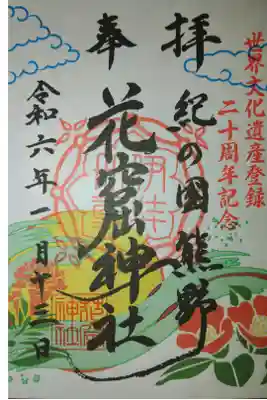 世界文化遺産登録
二十周年記念
奉拝
紀の国熊野
花窟神社
令和六年一月十三日